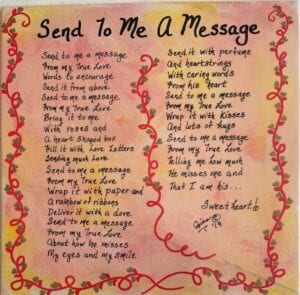 Send To Me A Message
Send to me a message
From my True Love
Words to encourage
Send it from above
Send to me a message
From my True Love
Bring it to me
With roses and
A heart shaped box
Fill it with Love Letters
Sending much Love
Send to me a message
From my True Love
Wrap it with paper and
A rainbow of ribbons
Deliver it with a dove
Send to me a message
From my True Love
About how he misses
My eyes and my smile
Send it with perfume
And heartstrings
With caring words
From his heart
Send to me a message
From my True Love
Wrap it with kisses
And lots of hugs
Send to me a message
From my True Love
Telling me how much
He misses me and
That I am his...
Sweetheart!